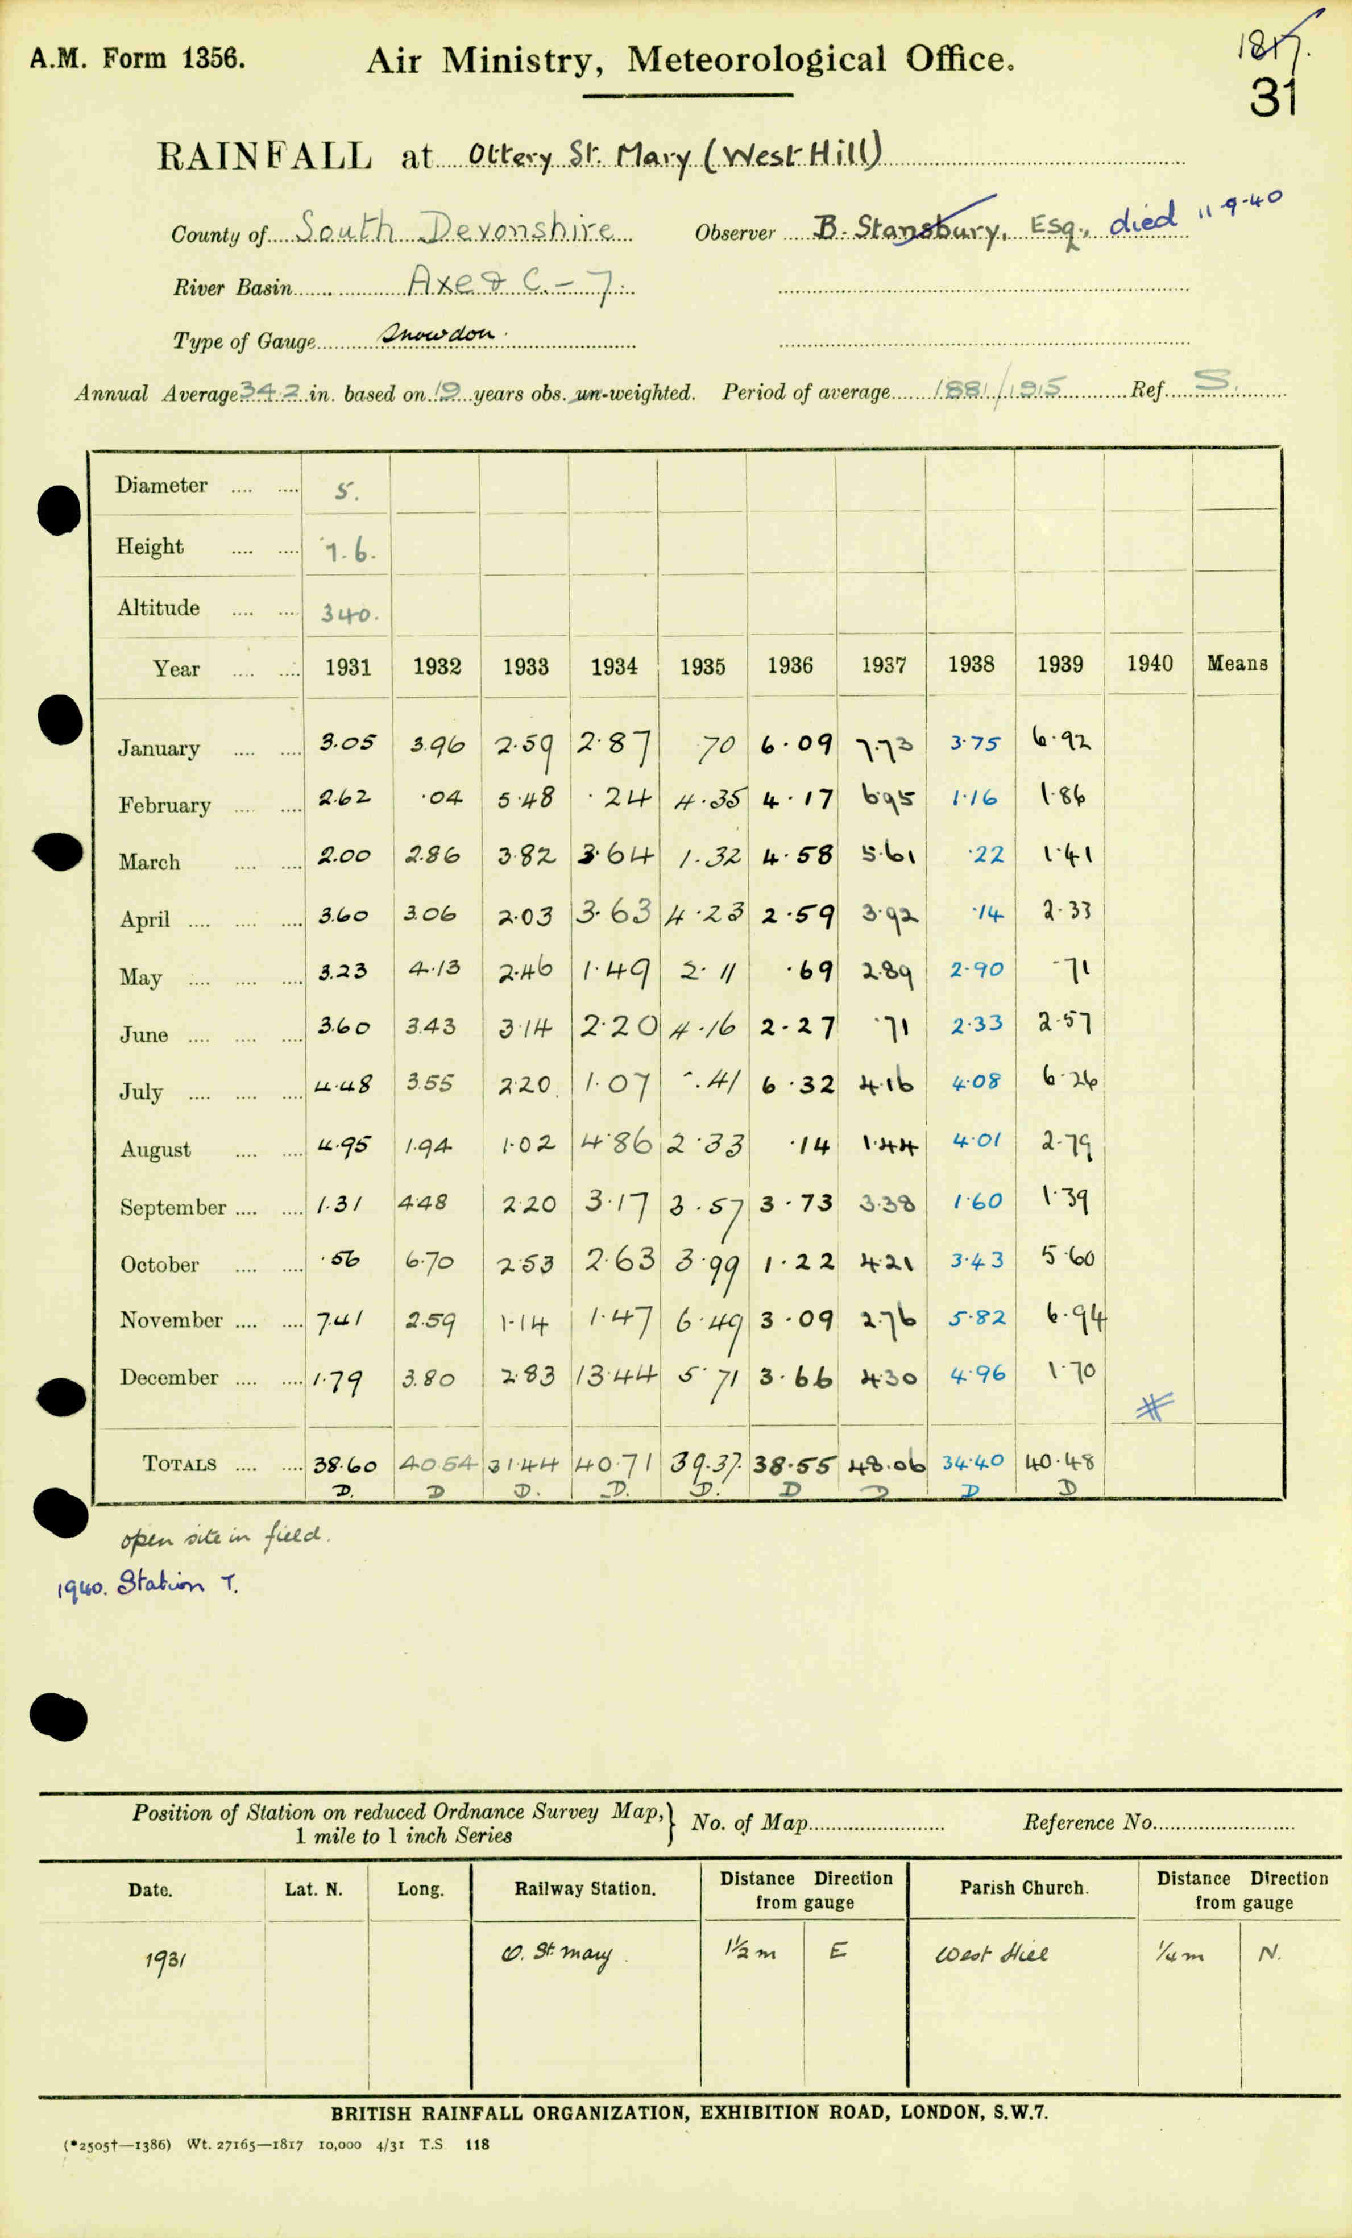 A.M. Form 1356.
Air Ministry, Meteorological Office.
1817.
31
RAINFALL at Ottery St. Mary (West Hill)
County of South Devonshire Observer B. Stansbury, Esq., died 11-9-40
River Basin Axe & C. - 7.
Type of Gauge Snowdon.
Annual Average 34.2 in. based on 19 years obs. un-weighted. Period of average 1881/1915 Ref. S.
Diameter .... .... 5.
Height .... .... 1.6.
Altitude .... .... 340.
Year .... .... 1931 1932 1933 1934 1935 1936 1937 1938 1939 1940 Means
January .... .... 3.05 3.96 2.59 2.87 70 6.09 7.73 3.75 6.92
February .... .... 2.62 .04 5.48 .24 4.35 4.17 6.95 1.16 1.86
March .... .... 2.00 2.86 3.82 3.64 1.32 4.58 5.61 .22 1.41
April .... .... .... 3.60 3.06 2.03 3.63 4.23 2.59 3.92 .14 2.33
May .... .... .... 3.23 4.13 2.46 1.49 2.11 .69 2.89 2.90 .71
June .... .... .... 3.60 3.43 3.14 2.20 4.16 2.27 .71 2.33 2.57
July .... .... .... 4.48 3.55 2.20 1.07 .41 6.32 4.16 4.08 6.26
August .... .... 4.95 1.94 1.02 4.86 2.33 .14 1.44 4.01 2.79
September .... .... 1.31 4.48 2.20 3.17 3.57 3.73 3.38 1.60 1.39
October .... .... .56 6.70 2.53 2.63 3.99 1.22 4.21 3.43 5.60
November .... .... 7.41 2.59 1.14 1.47 6.49 3.09 2.76 5.82 6.94
December .... .... 1.79 3.80 2.83 13.44 5.71 3.66 4.30 4.96 1.70
#
TOTALS .... .... 38.60 40.54 31.44 40.71 39.37 38.55 48.06 34.40 40.48
D. D D. D. D. D D D D
open site in field.
1940. Station T.
Position of Station on reduced Ordnance Survey Map,} No. of Map Reference No.
1 mile to 1 inch Series
Date. Lat. N. Long. Railway Station. Distance Direction from gauge Parish Church. Distance Direction from gauge
1931 O. St. Mary. 1½ m E West Hill ¼ m N.
BRITISH RAINFALL ORGANIZATION, EXHIBITION ROAD, LONDON, S.W.7.
(*2505†—1386) Wt. 27165—1817 10,000 4/31 T.S 118